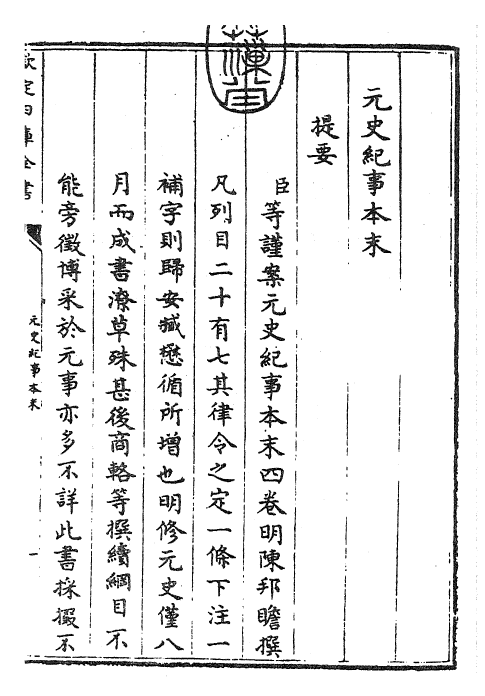 元史紀事本末
提要
臣等謹案元史紀事本末四卷明陳邦瞻撰
凡列目二十有七其律令之定一條下注一
補字則歸安臧懋循所增也明修元史僅八
月而成書潦草殊甚後商輅等撰續綱目不
能旁徵博采於元事亦多不詳此書採掇不
欽定四庫全書
元史紀事本末
一